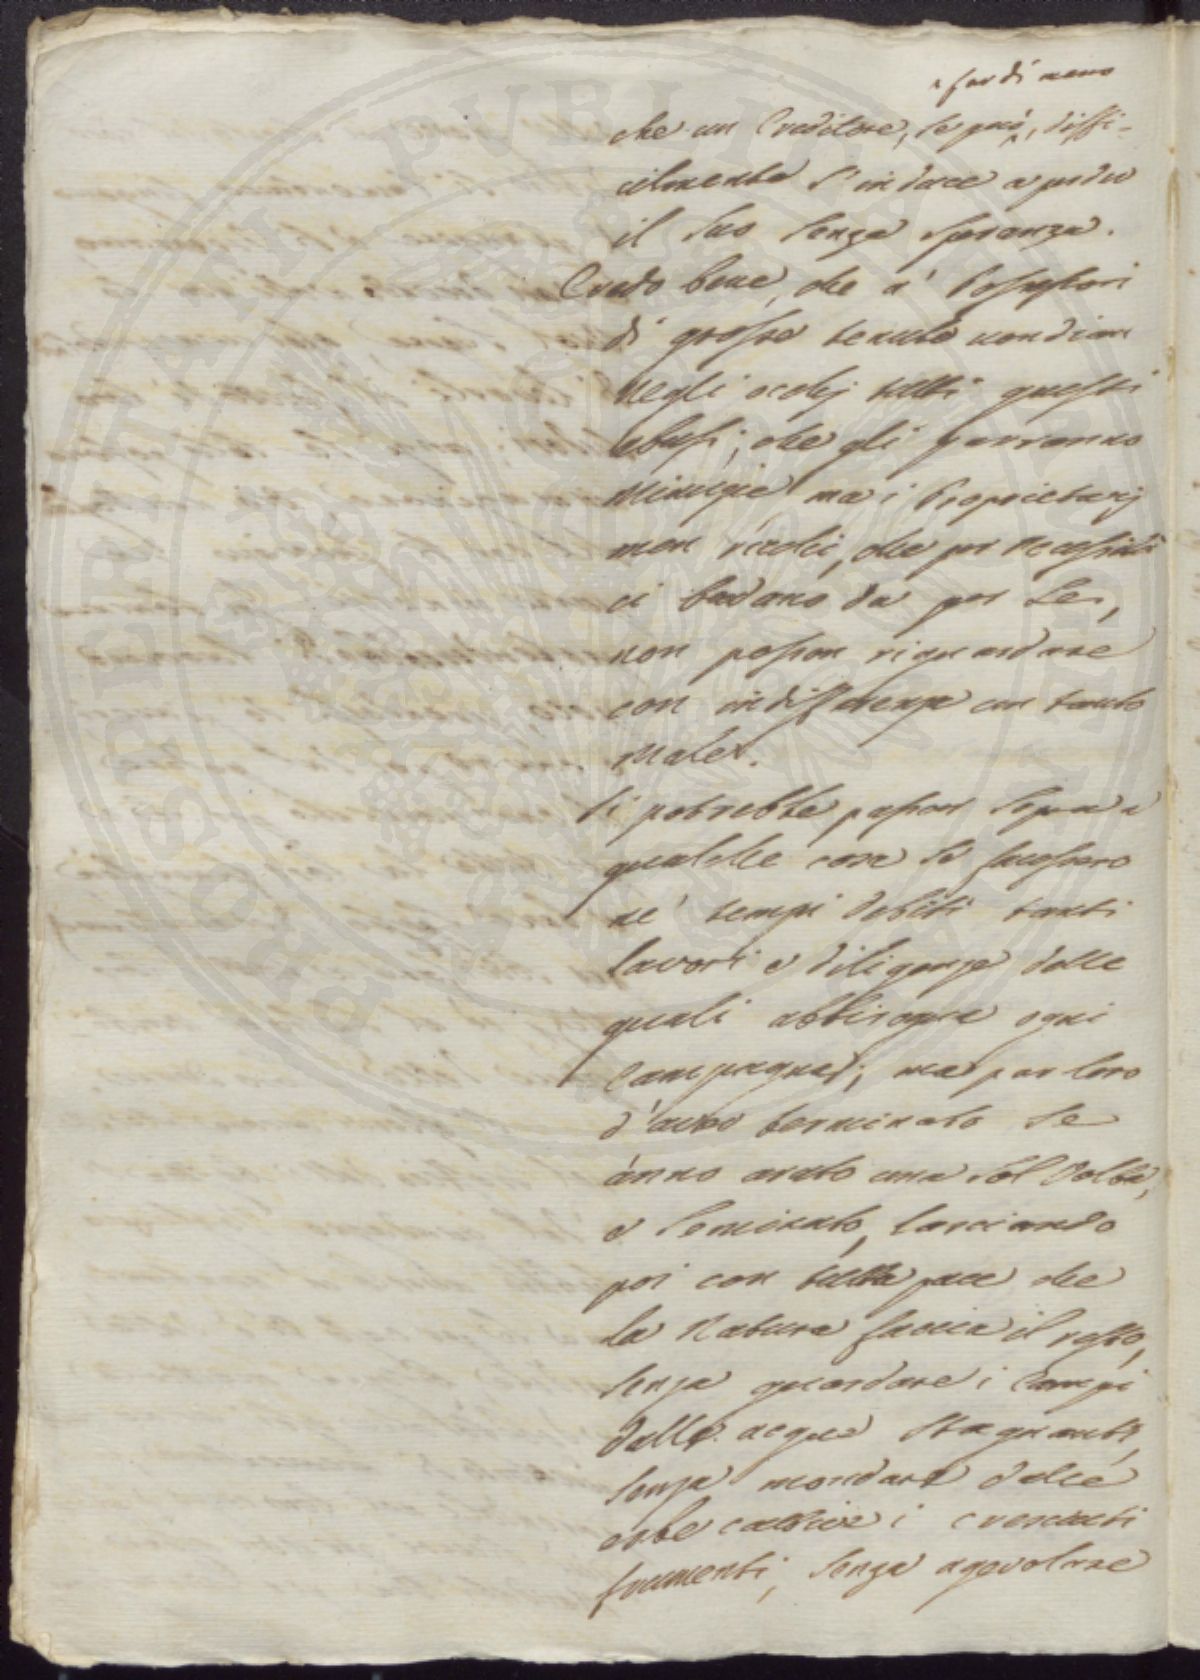 ^ far di meno
che un Creditore, se può ^, diffi=
cilmente s'induce a perder
il suo senza speranza.
Credo bene, che a' Possessori
di grosse tenute non dian
negli occhj tutti questi
abusi, che gli parranno
minuzie, ma i Proprietarj
men ricchi, che per necessità
ci badano da per se,
non posson riguardare
con indifferenza un tanto
male.
Si potrebbe passar sopra a
qualche cosa se facessero
ne' tempi debiti tanti
lavori e diligenze delle
quali abbisogna ogni
Campagna; ma par loro
d'aver terminato se
ànno arato una sol volta,
e seminato, lasciando
poi con tutta pace che
la Natura faccia il resto,
senza guardare i Campi
dalle acque stagnanti,
senza mondare dalle
erbe cattive i cresciuti
frumenti, senza agevolare
PROSPERITÀ PUBLICA